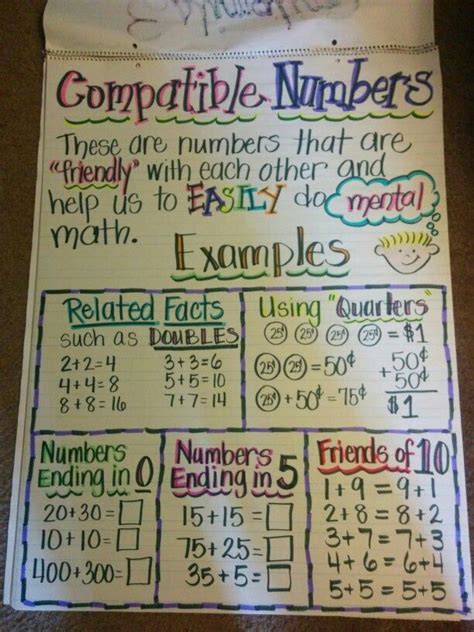 Compatible Numbers
These are numbers that are
"friendly" with each other and
help us to EASILY do mental
math.
Examples
Related Facts
such as DOUBLES
2+2=4 3+3=6
4+4=8 5+5=10
8+8=16 7+7=14
Using "Quarters"
25¢ 25¢ 25¢ 25¢ = $1
25¢ 25¢ = 50¢
25¢ + 50¢ = 75¢
50¢
+ 50¢
$1
Numbers
Ending in 0
20+30=
10+10=
400+300=
Numbers
Ending in 5
15+15=
75+25=
35+5=
Friends of 10
1+9=9+1
2+8=8+2
3+7=7+3
4+6=6+4
5+5=5+5